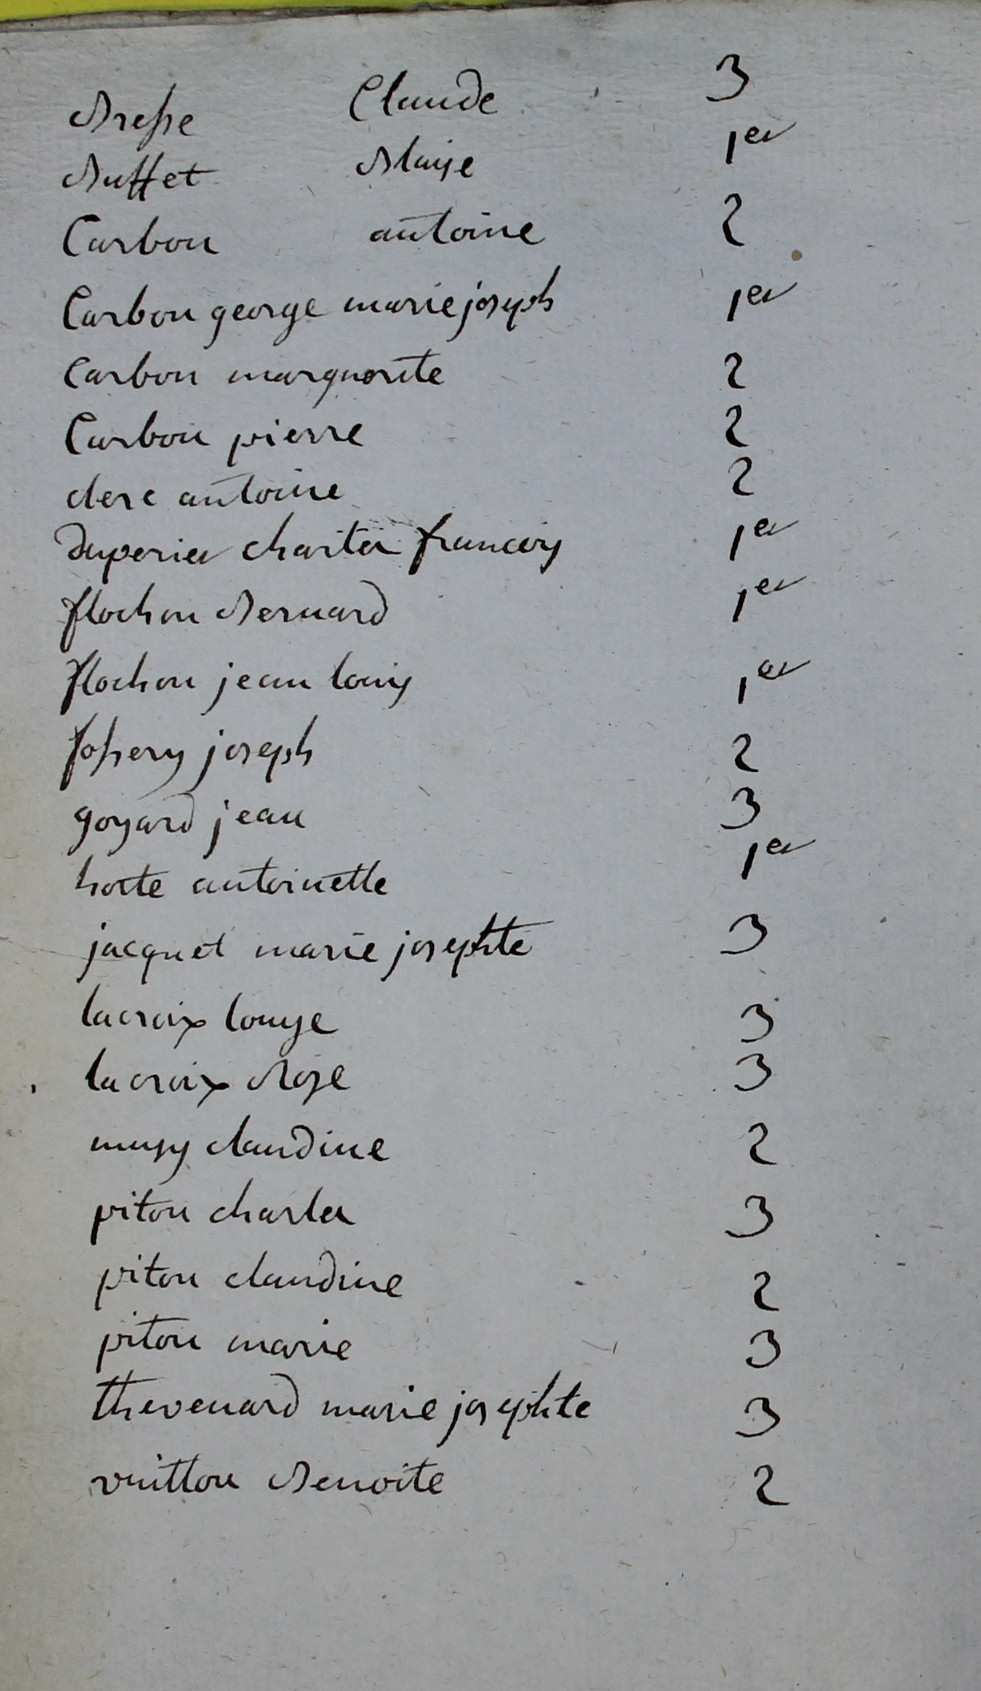 Bresse Claude 3
Buffet Blaise 1er
Carbon antoine 2
Carbon george marie joseph 1er
Carbon marguerite 2
Carbon pierre 2
clerc antoine 2
duperier charles francois 1er
flochon Bernard 1er
flochon jean louis 1er
fossery joseph 2
goyard jean 3
hoste antoinette 1er
jacquet marie josephte 3
lacroix louyse 3
lacroix Rose 3
musy claudine 2
piton charles 3
piton claudine 2
piton marie 3
thevenard marie josephte 3
vuitton Benoite 2